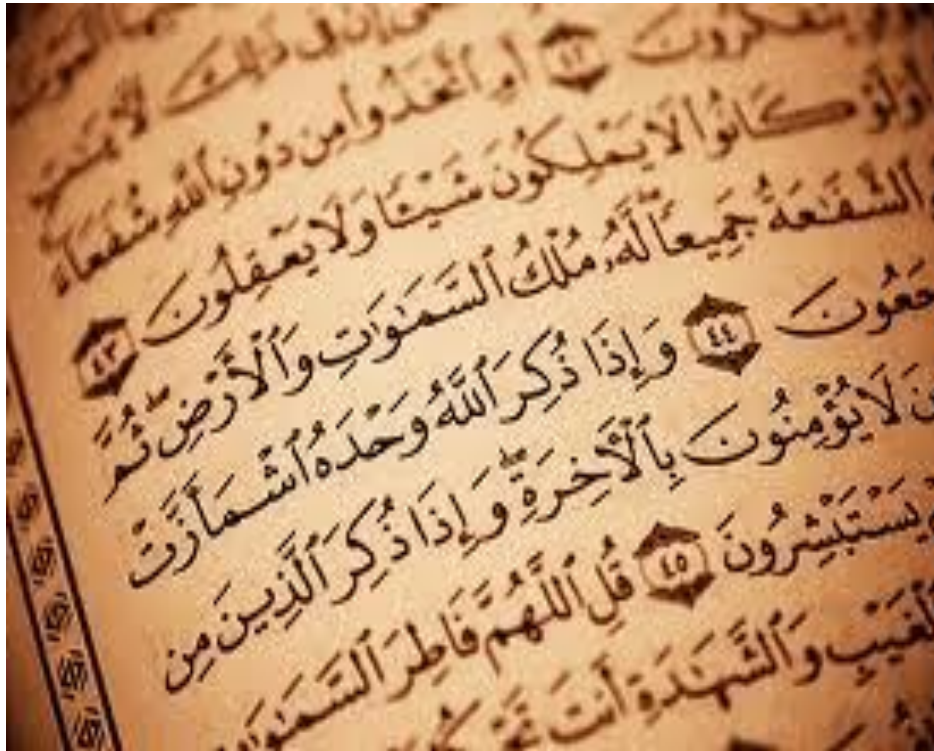 إن في ذلك لآيات
يتفكرون ٤٢ أم اتخذوا من دون الله شفعاء
أولو كانوا لا يملكون شيئا ولا يعقلون ٤٣
الشفعة جميعا له ملك السموت والأرض ثم
جعون ٤٤ وإذا ذكر الله وحده اشمأزت
ن لا يؤمنون بالأخرة وإذا ذكر الذين من
يستبشرون ٤٥ قل اللهم فاطر السموات
الغيب والشهدة أنت تح